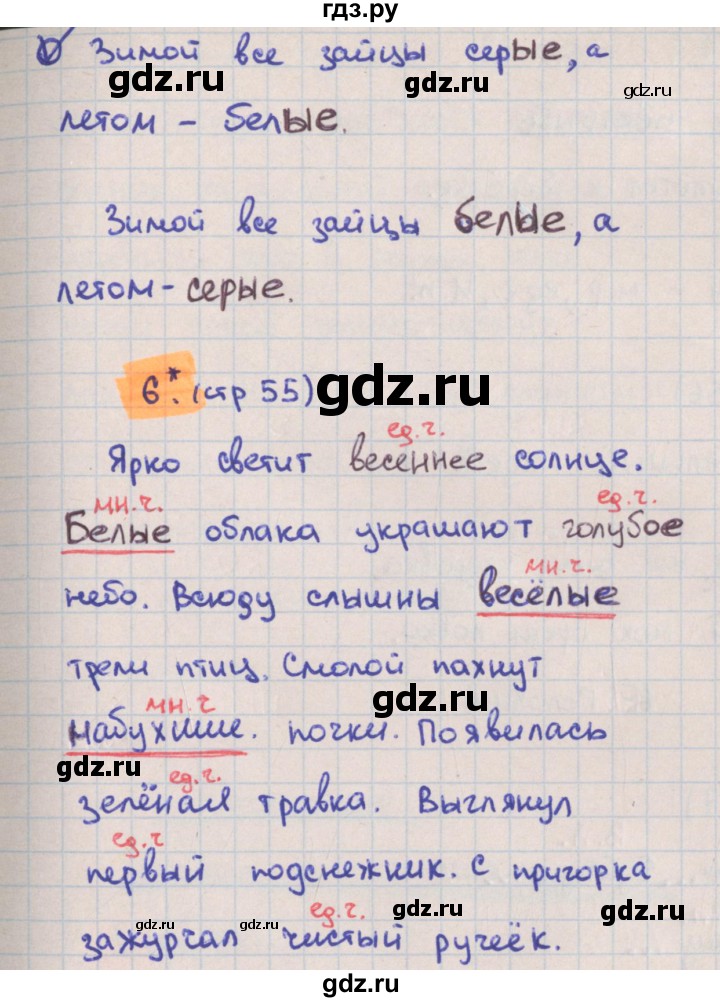 гдз.ру
Зимой все зайцы серые, а
gdz.ru
gdz.ru
летом - белые.
gdz.ru
Зимой все зайцы белые, а
летом - серые.
gdz.ru
6*. (стр 55)
ед.ч.
Ярко светит весеннее солнце.
мн.ч. ед.ч.
Белые облака украшают голубое
мн.ч.
небо. Всюду слышны весёлые
трели птиц. Смолой пахнут
мн.ч
набухшие. почки. Появилась
gdz.ru gdz.ru
ед.ч.
зелёная травка. Выглянул
ед.ч
первый подснежник. С пригорка
gdz.ru gdz.ru gdz.ru
ед.ч.
зажурчал чистый ручеёк.
gdz.ru
gdz.ru